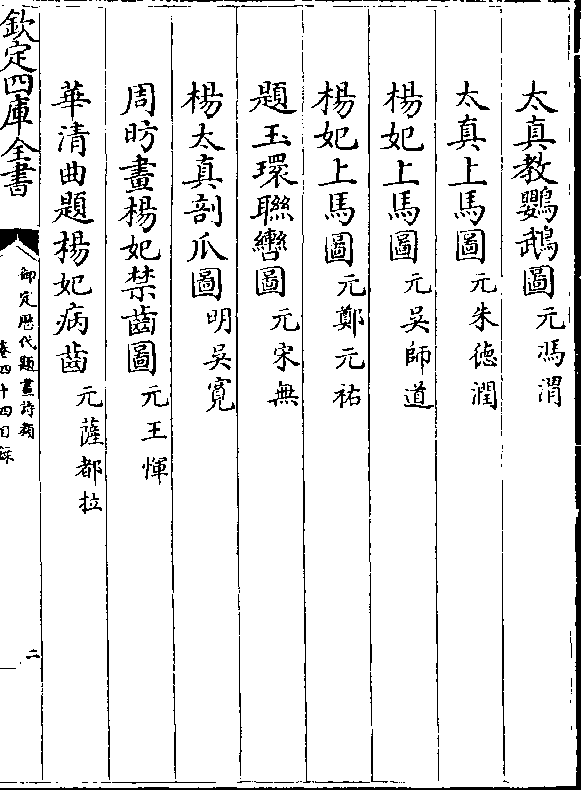 太真教鸚鵡圖元馮渭
太真上馬圖元朱徳潤
楊妃上馬圖元吳師道
楊妃上馬圖元鄭元祐
題玉環聯轡圖元宋無
楊太真剖瓜圖明吳寛
周昉畫楊妃禁齒圖元王惲
華清曲題楊妃病齒元薩都拉
欽定四庫全書
御定歴代題畫詩類
卷四十四目録
二